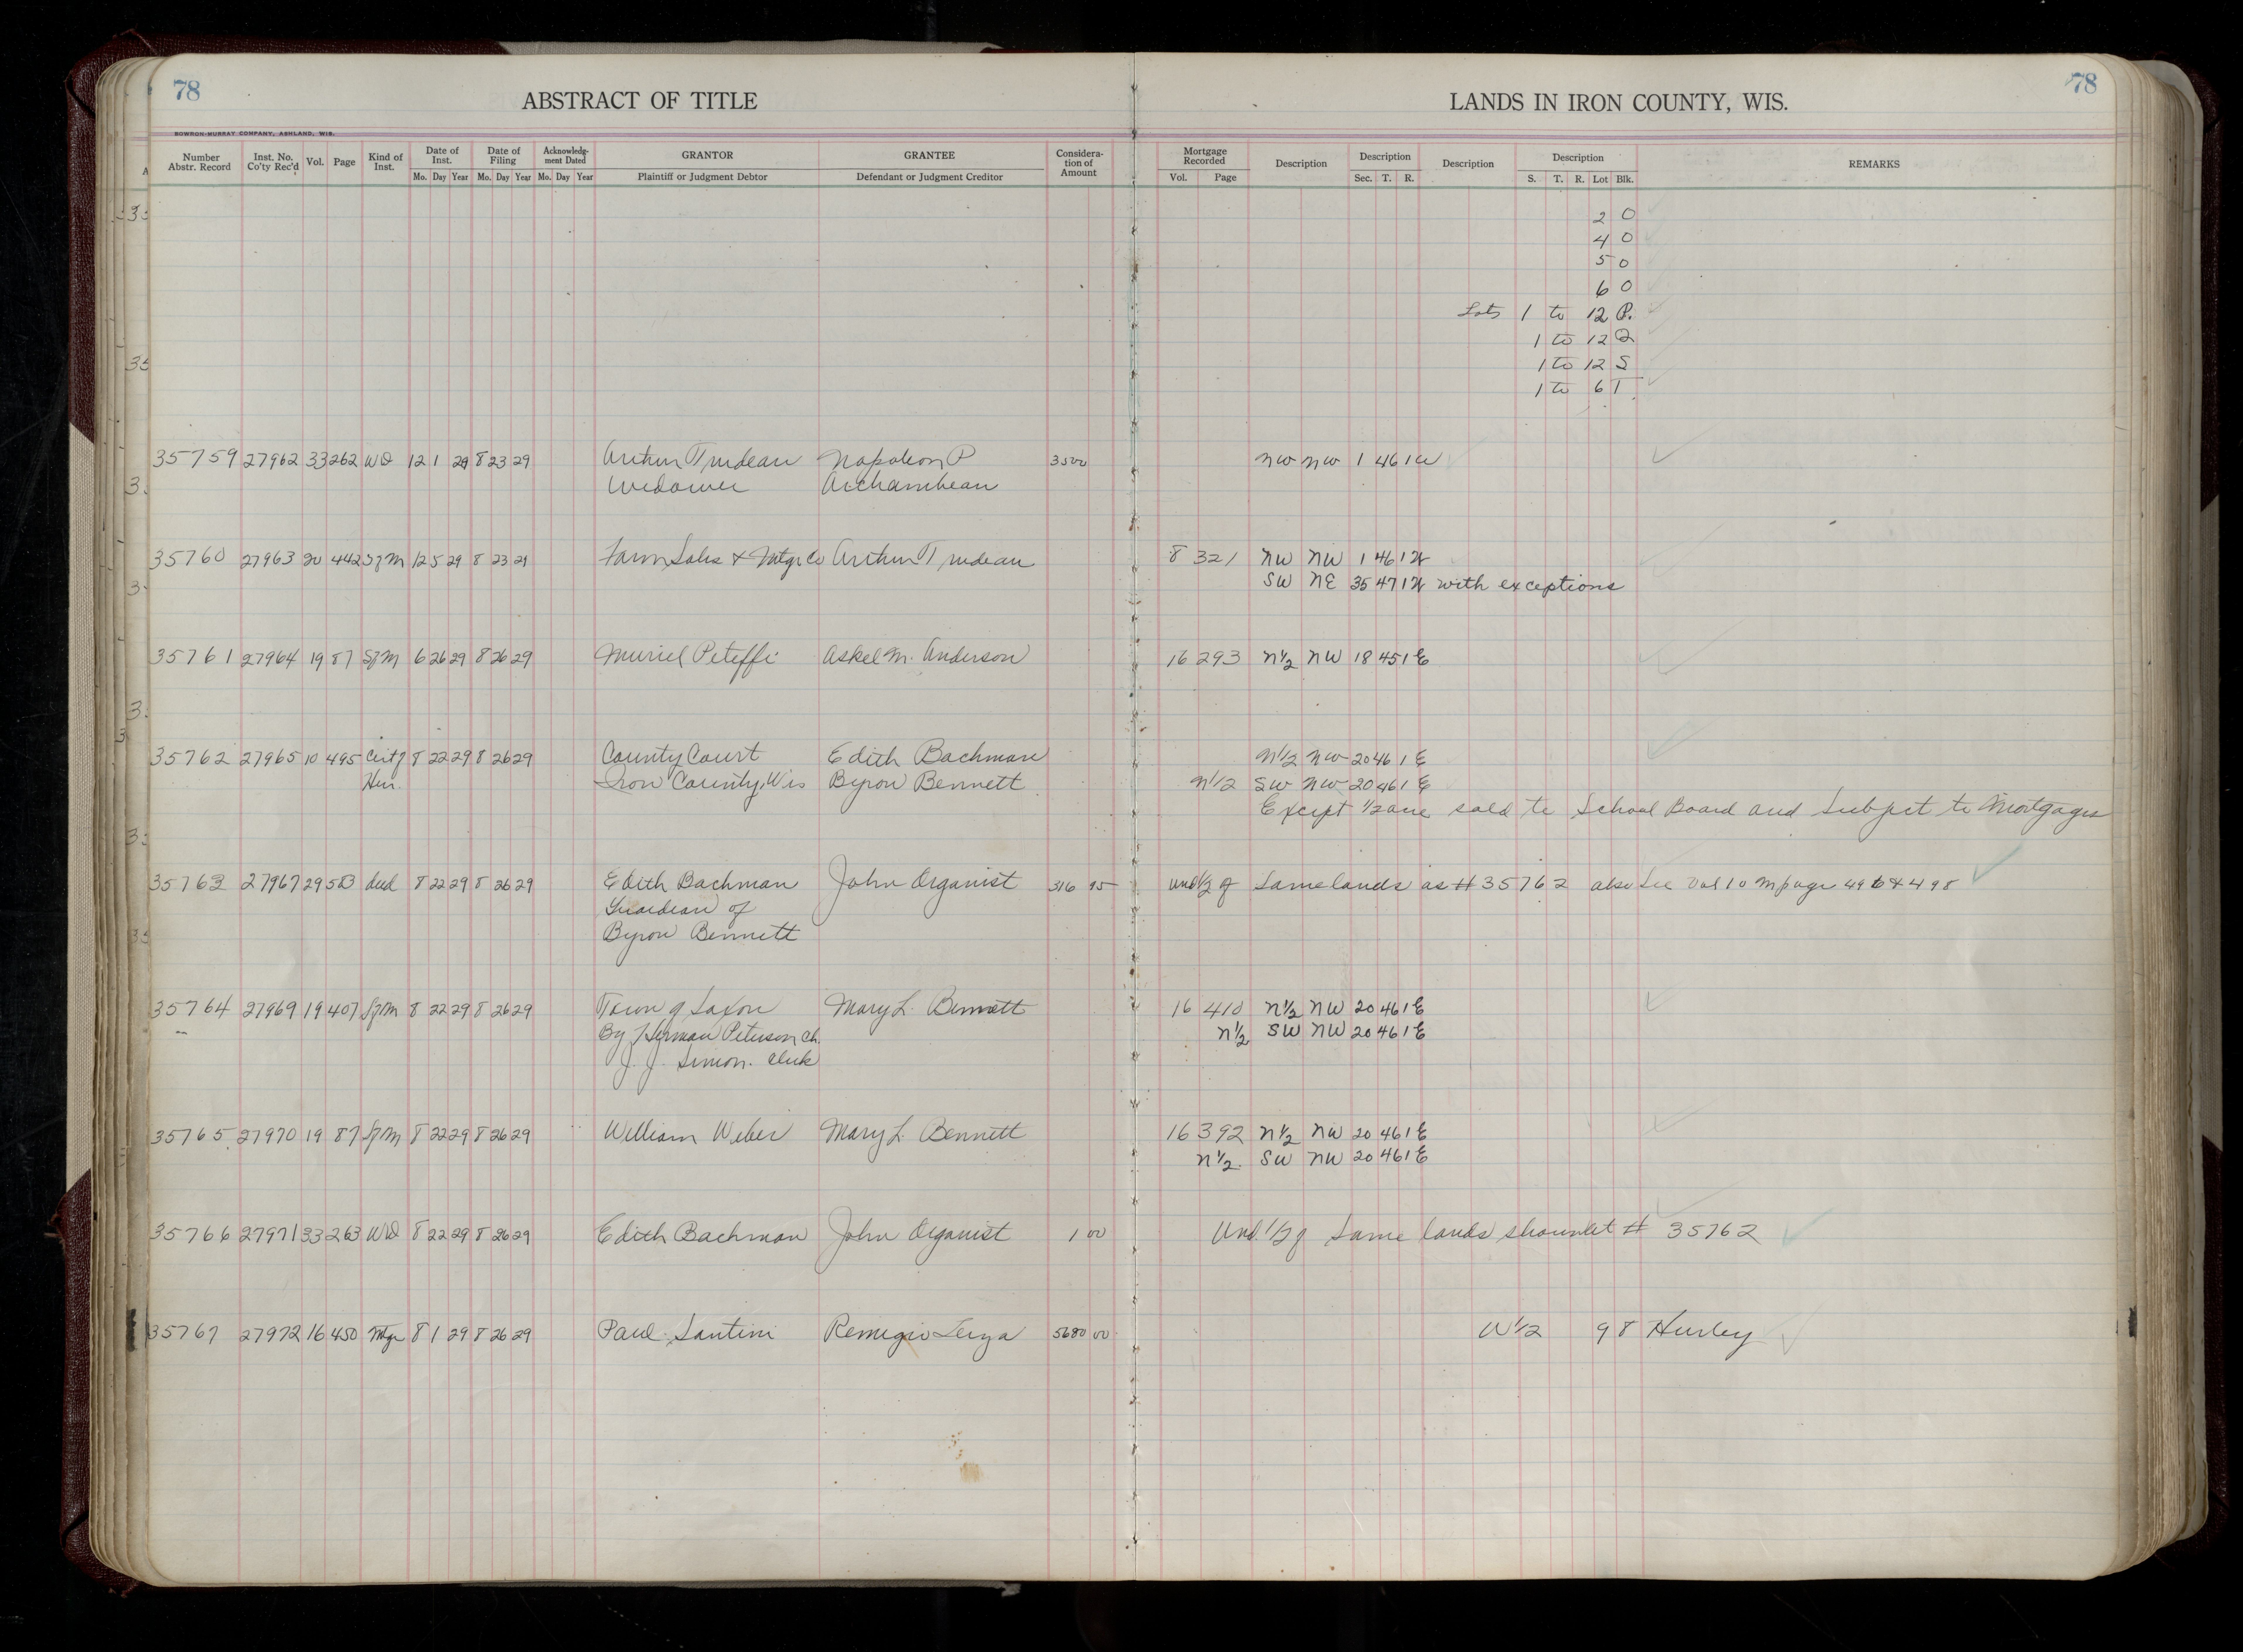 78
ABSTRACT OF TITLE
LANDS IN IRON COUNTY, WIS.
78
BOWRON-MURRAY COMPANY, ASHLAND, WIS.
Number Abstr. Record Inst. No. Co'ty Rec'd Vol. Page Kind of Inst. Date of Inst. Mo. Day Year Date of Filing Mo. Day Year Acknowledg-ment Dated Mo. Day Year GRANTOR Plaintiff or Judgment Debtor GRANTEE Defendant or Judgment Creditor Considera-tion of Amount Mortgage Recorded Vol. Page Description Description Sec. T. R. Description Description S. T. R. Lot Blk. REMARKS
2 O
4 O
5 O
6 O
Lots 1 to 12 P.
1 to 12 Q
1 to 12 S
1 to 6 T
35759 27962 33 262 WD 12 1 29 8 23 29 Arthur Trudeau Napoleon P 3500 NW NW 1 46 1W
Widower Archambeau
35760 27963 20 442 SfM 12 5 29 8 23 29 Farm Sales & Mtge Co Arthur Trudeau 8 321 NW NW 1 46 1W
SW NE 35 47 1W with exceptions
35761 27964 19 87 SfM 6 26 29 8 26 29 Muriel Peteffi Askel M. Anderson 16 293 N1/2 NW 18 45 1E
35762 27965 10 495 Certf 8 22 29 8 26 29 County Court Edith Bachman N1/2 NW 20 46 1E
Heir. Iron County, Wis Byron Bennett N1/2 SW NW 20 46 1E
Except 1/2 acre sold to School Board and Subject to Mortgages
35763 27967 29 583 deed 8 22 29 8 26 29 Edith Bachman John Organist 316 95 Und 1/2 of Same lands as #35762 also See Vol 10 M page 496 & 498
Guardian of
Byron Bennett
35764 27969 19 407 SfM 8 22 29 8 26 29 Town of Saxon Mary L. Bennett 16 410 N1/2 NW 20 46 1E
By Herman Peterson Ch. N1/2 SW NW 20 46 1E
J. J. Simon. Clerk
35765 27970 19 87 SfM 8 22 29 8 26 29 William Weber Mary L. Bennett 16 392 N1/2 NW 20 46 1E
N1/2. SW NW 20 46 1E
35766 27971 33 263 WD 8 22 29 8 26 29 Edith Bachman John Organist 1 00 Und 1/2 of Same lands shown at # 35762
35767 27972 16 450 Mtge 8 1 29 8 26 29 Paul Santini Remigio 5680 00 W1/2 9 8 Hurley